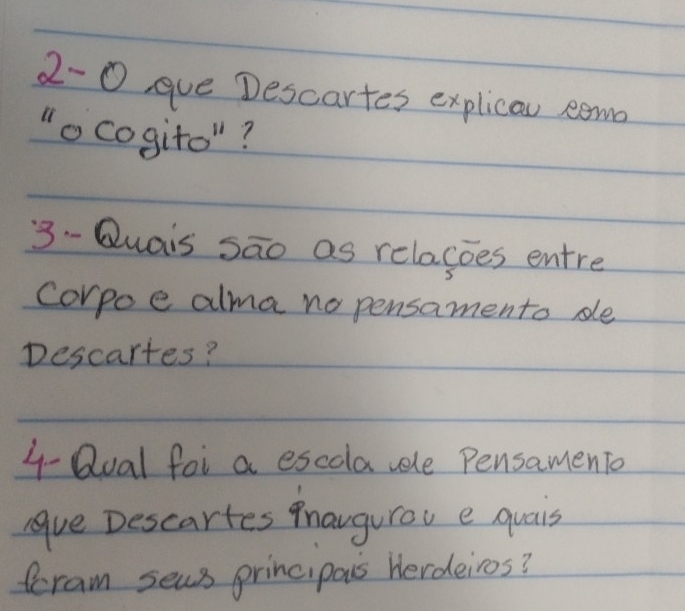 2- O que Descartes explicou como
"o cogito"?
3- Quais são as relações entre
corpo e alma no pensamento de
Descartes?
4- Qual foi a escola de Pensamento
que Descartes inaugurou e quais
foram seus principais Herdeiros?